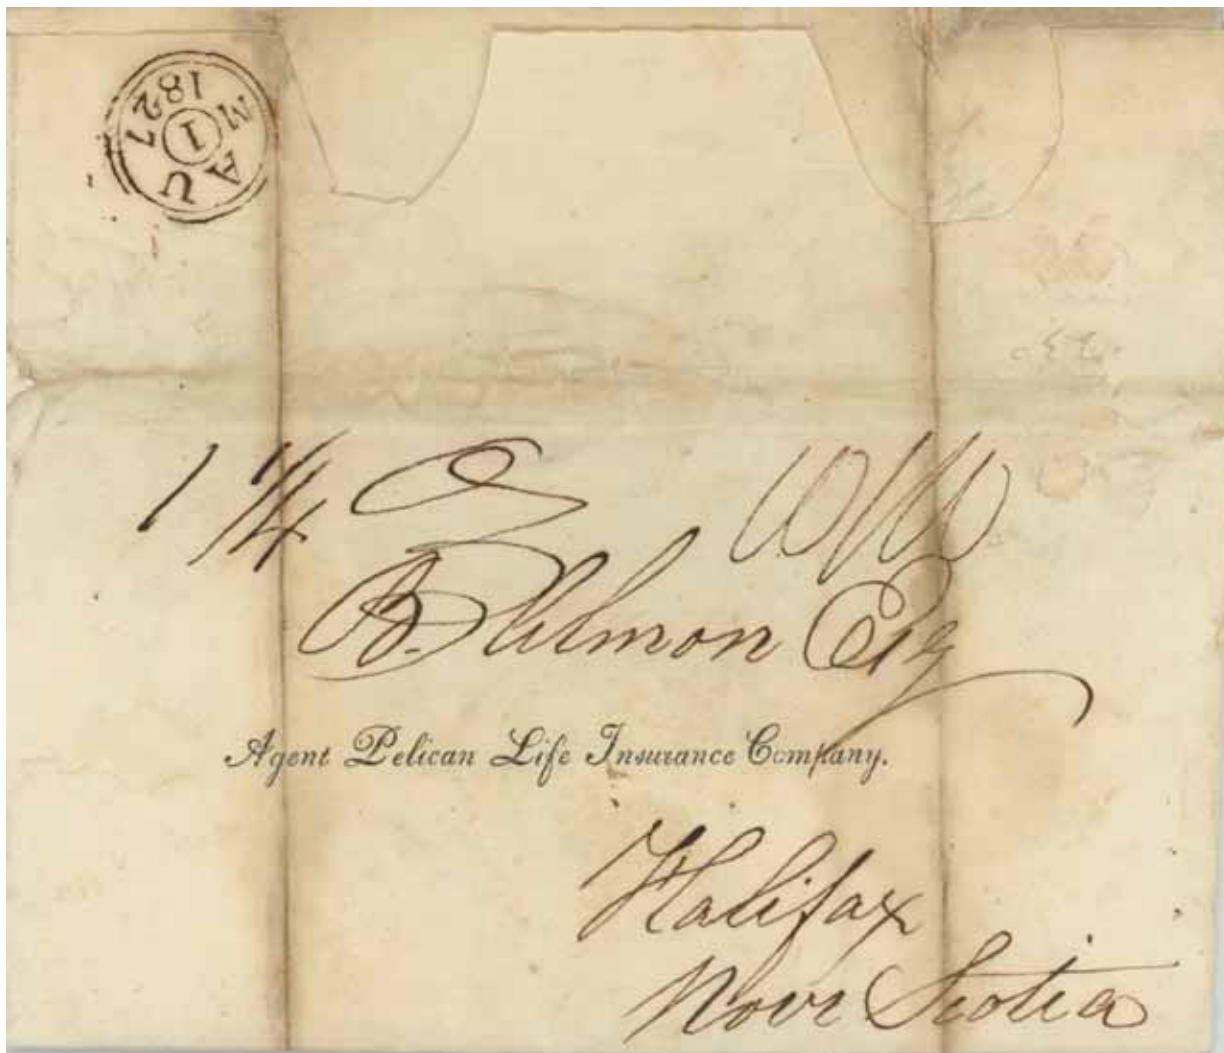 M AU
1
1827
1 1/4
Esq
Agent Pelican Life Insurance Company.
Halifax
Nova Scotia